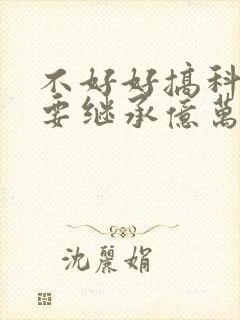 不好好搞科
要继承億萬
沈麗娟